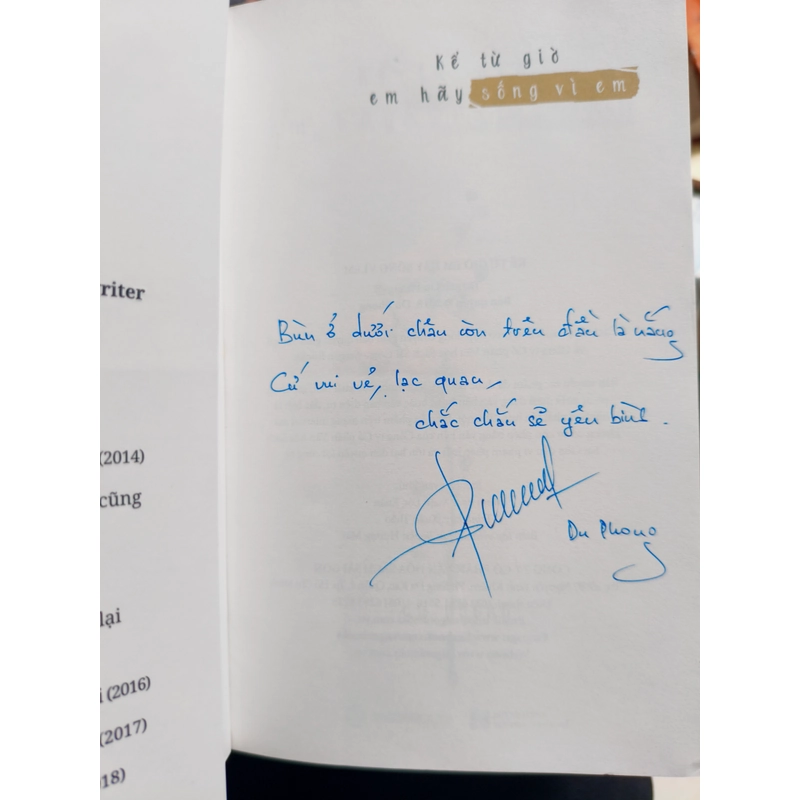 Kể từ giờ
em hãy sống vì em
Bùn ở dưới chân còn trên đầu là nắng
Cứ vui vẻ, lạc quan,
chắc chắn sẽ yên bình.
Du Phong
riter
(2014)
cũng
lại
i (2016)
(2017)
18)